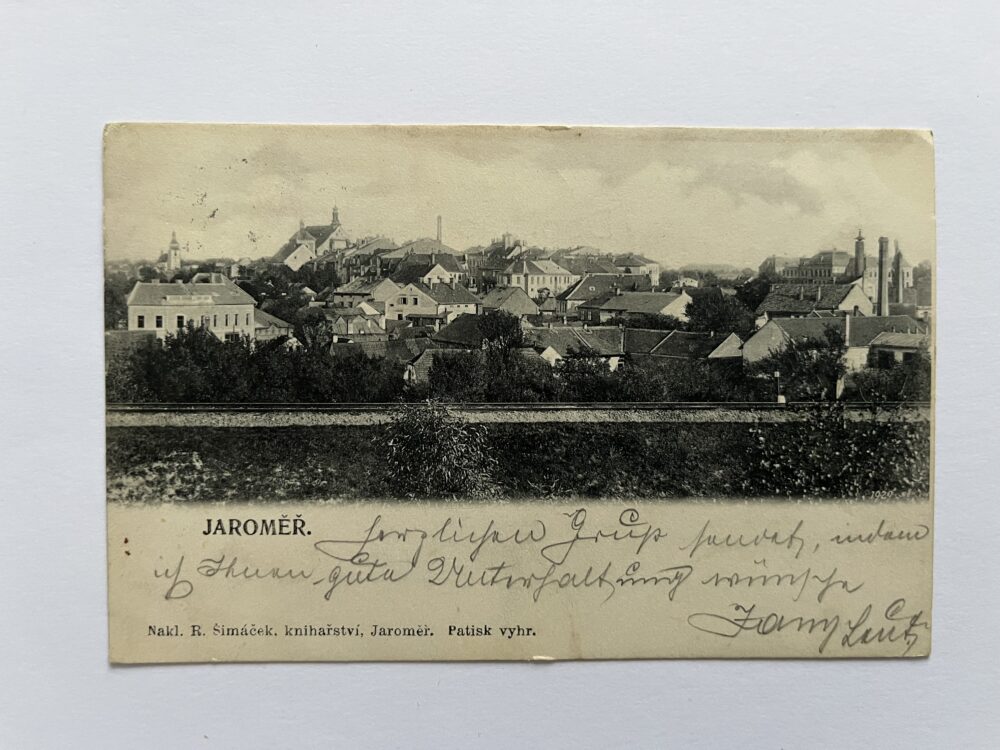 JAROMĚŘ.
Herzlichen Gruß sendet, indem
ich Ihnen gute Unterhaltung wünsche
Nakl. R. Šimáček, knihařství, Jaroměř. Patisk vyhr.